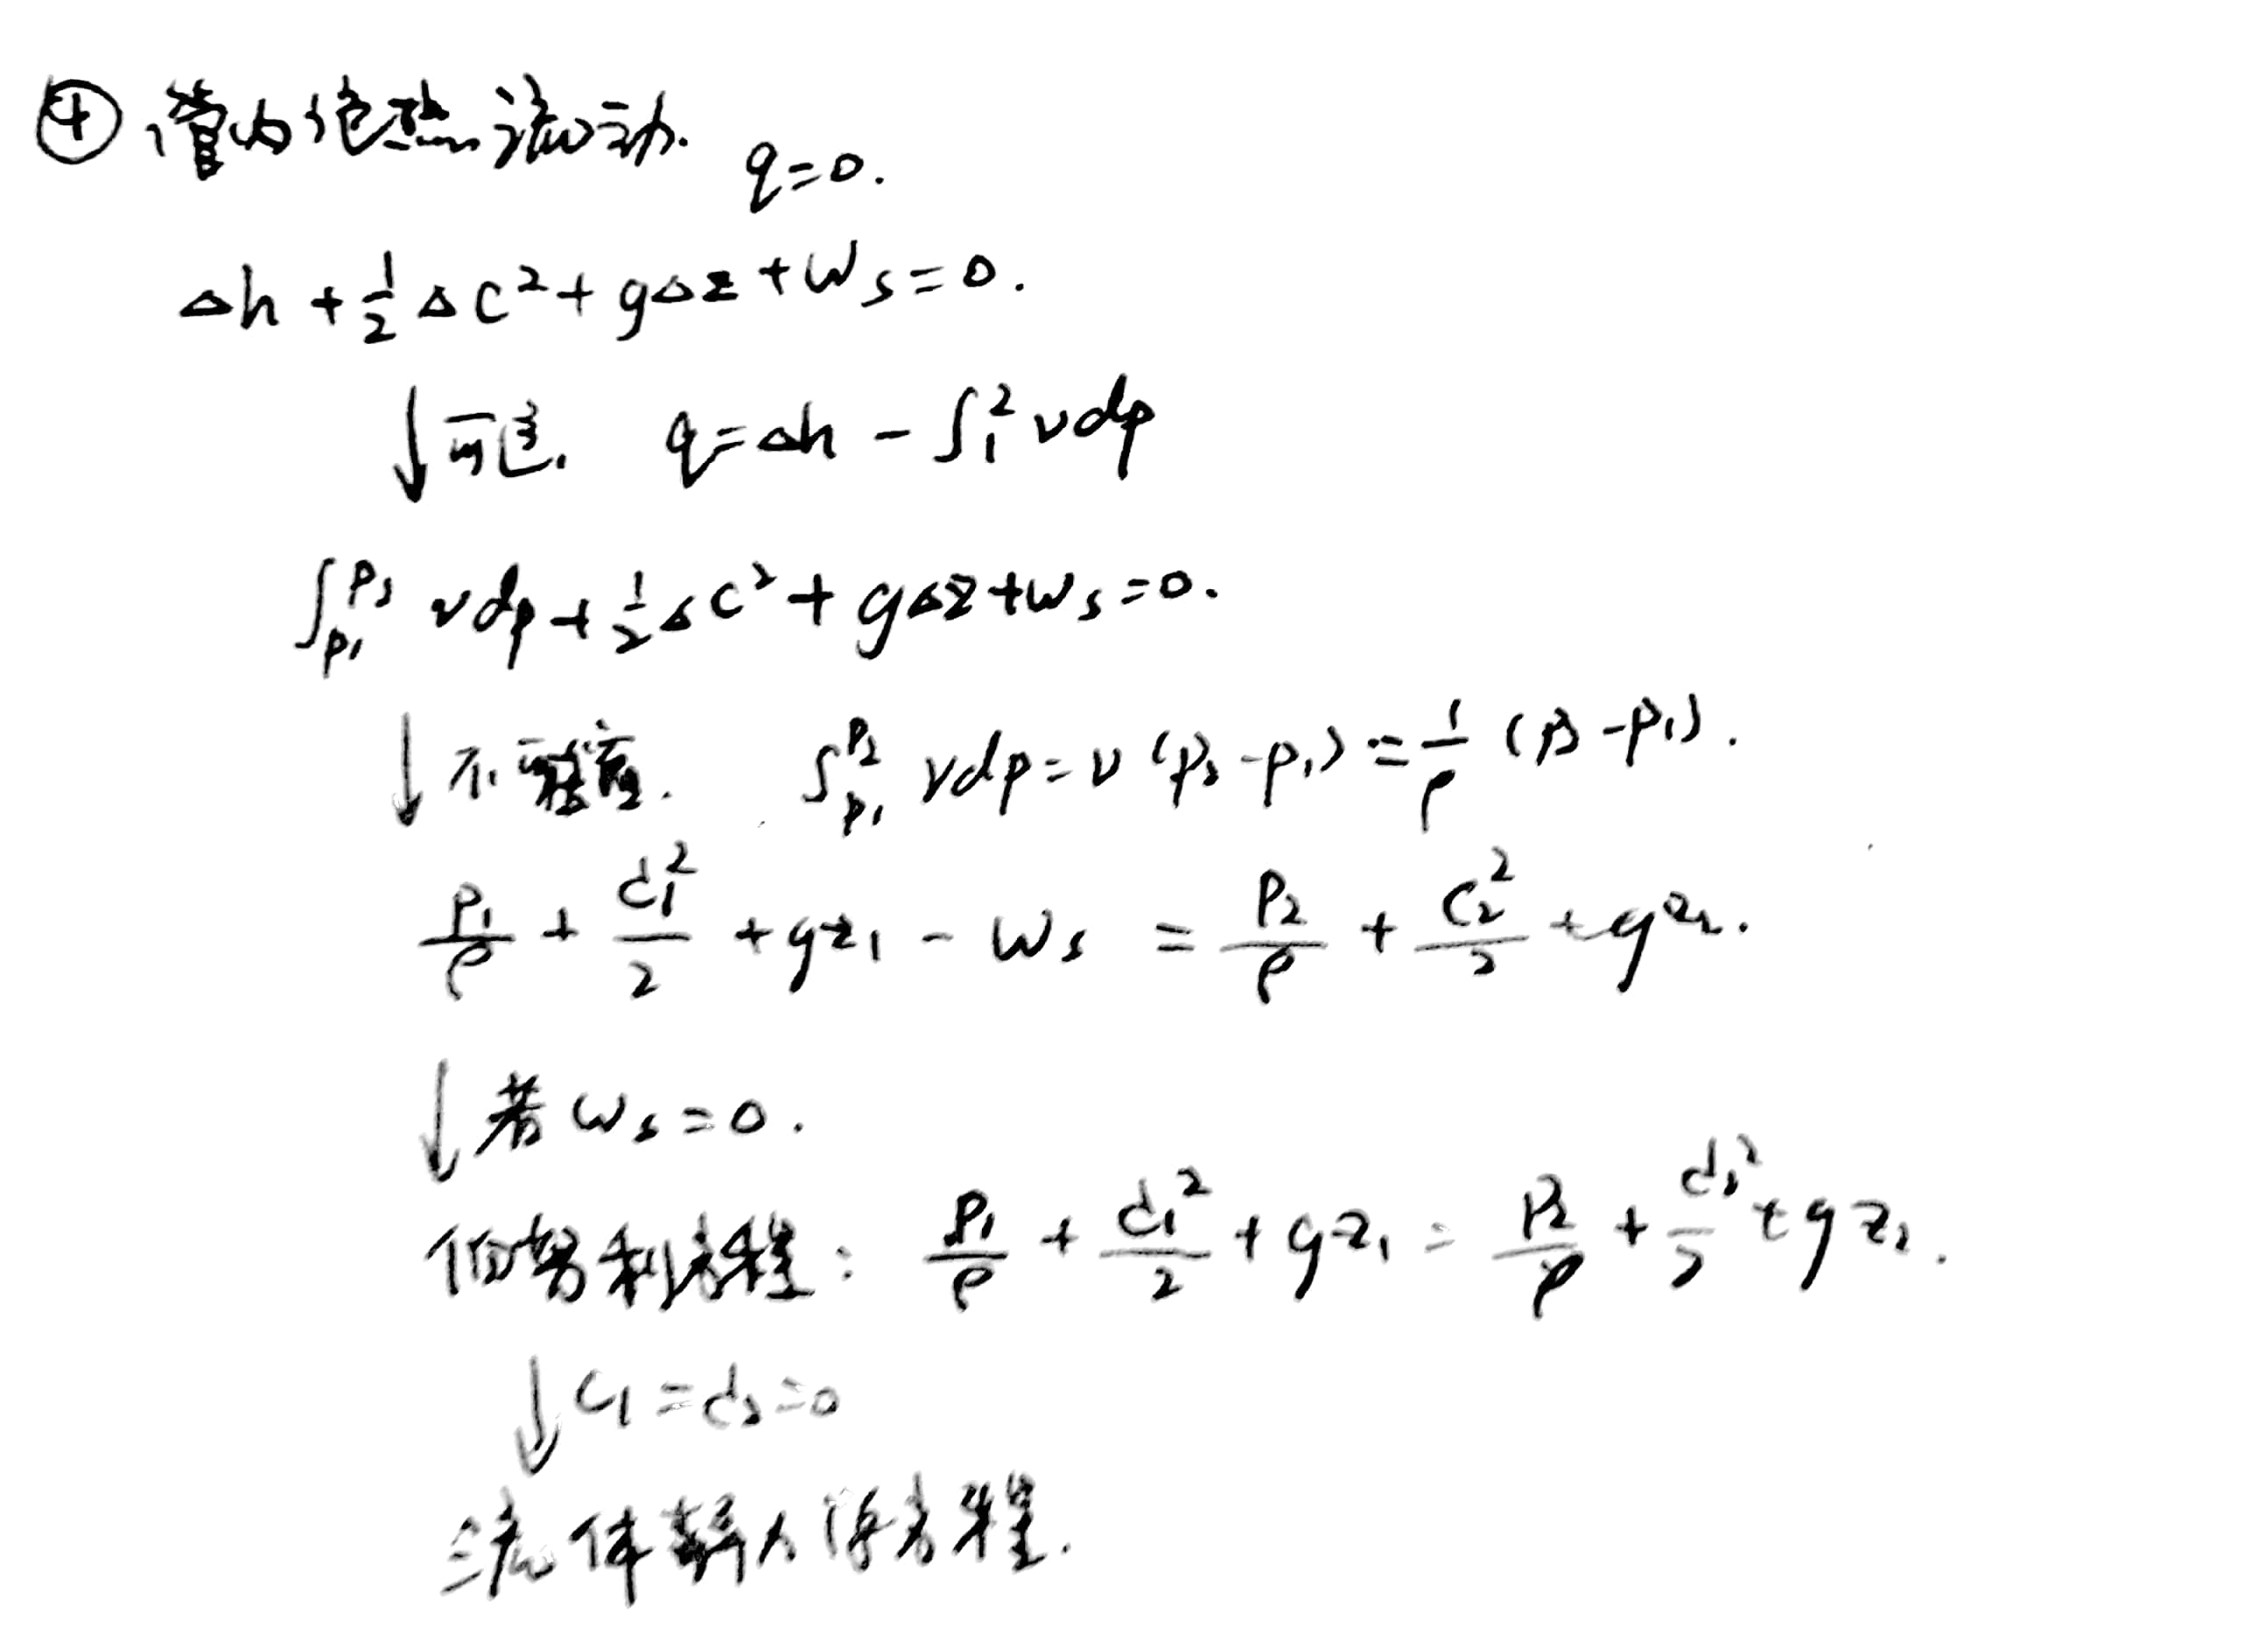 ④ 管内绝热流动. q=0.
Δh + 1/2 Δc² + gΔz + Ws = 0.
↓可逆. q = Δh - ∫₁² vdp
∫_{p₁}^{p₂} vdp + 1/2 Δc² + gΔz + Ws = 0.
↓不可压缩. ∫_{p₁}^{p₂} vdp = v(p₂-p₁) = 1/ρ (p₂-p₁).
p₁/ρ + c₁²/2 + gz₁ - Ws = p₂/ρ + c₂²/2 + gz₂.
↓若 Ws = 0.
伯努利方程: p₁/ρ + c₁²/2 + gz₁ = p₂/ρ + c₂²/2 + gz₂.
↓ c₁ = c₂ = 0
流体静力学方程.